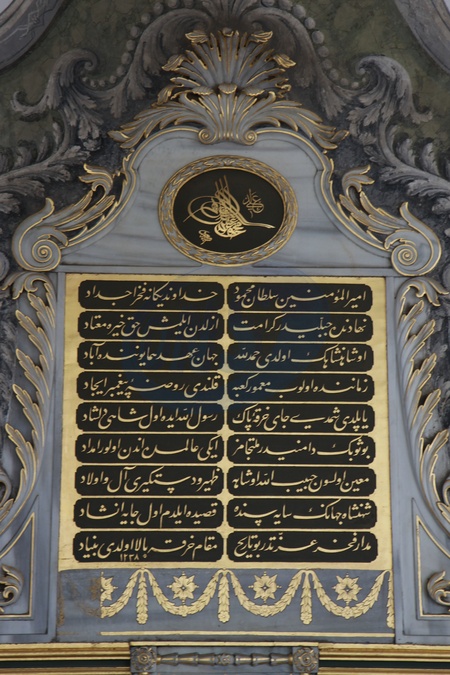 عدلی
امیر المؤمنین سلطان محمود خداوند یگانه فخر اجداد
نهادندن جبلیدر كرامت ازلدن ایلمش حق خیره معتاد
او شاهنشاهك اولدی حمد لله جهان عهد همایوننده آباد
زماننده اولوب معمور كعبه قلندی روضۀ پیغمبر ایجاد
یاپلدی شمدی جای خرقۀ پاك رسول الله ایده اول شاهی دلشاد
بو ثوبك دامنیدر ملتجامز ایكی عالمده اندن اولور امداد
معین اولسون حبیب الله او شاهه ظهیر و دستگیری آل و اولاد
شهنشاه جهانك سایه سنده قصیده ایلدم اول جایه انشاد
مدار فخر عزتدر بو تاریخ مقام خرقه بالا اولدی بنیاد
١٢٣٨